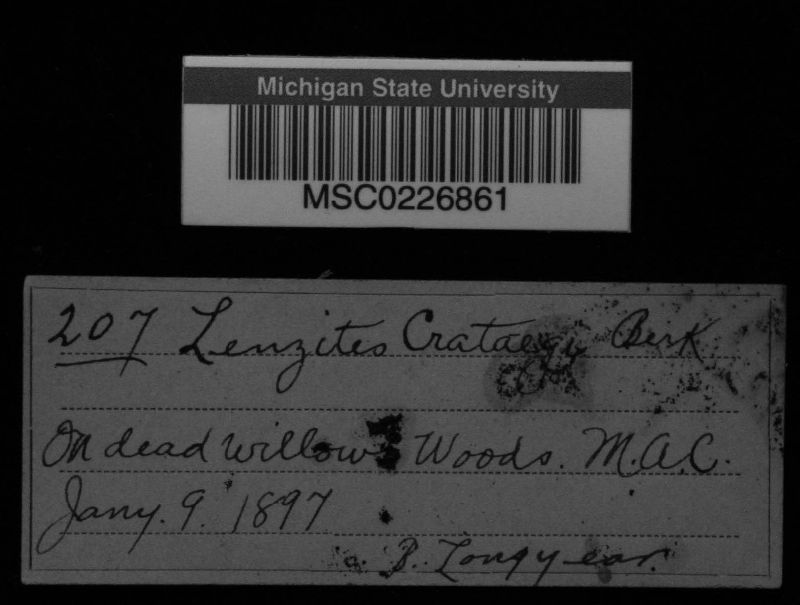 Michigan State University
MSC0226861
207 Lenzites Crataegi Berk
On dead willow Woods. M.A.C.
Jany. 9. 1897
B. Longyear.